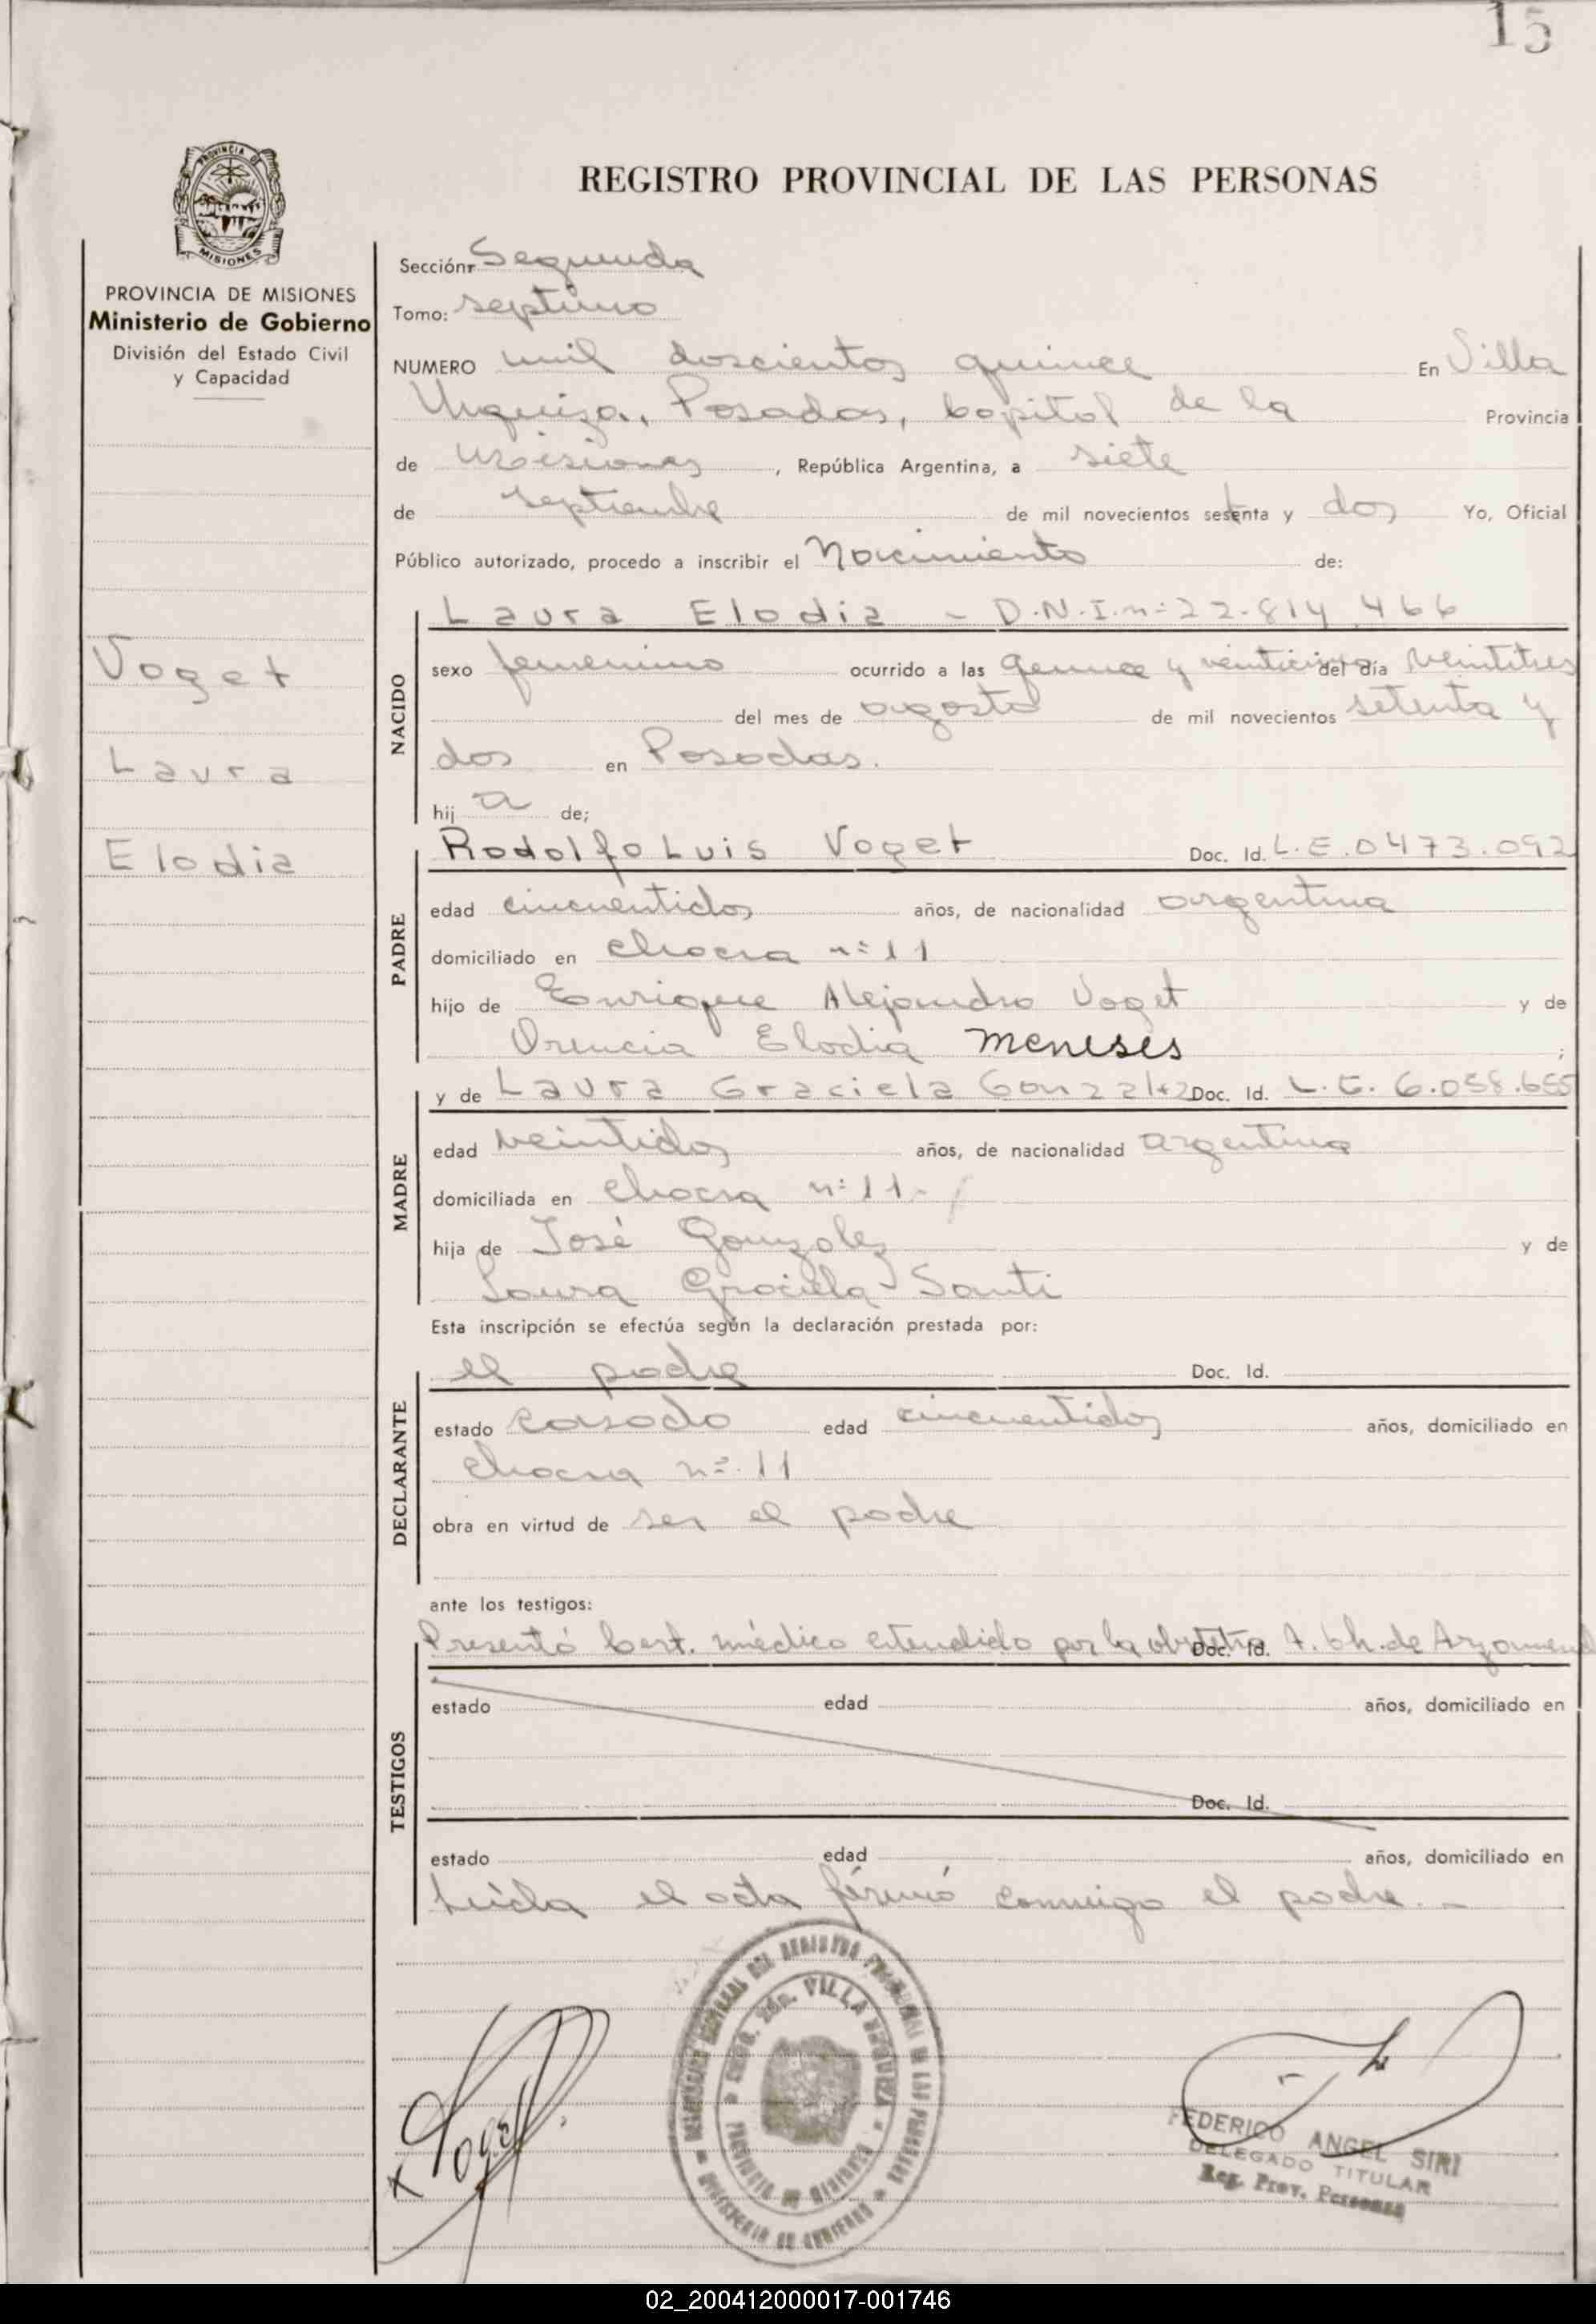 15
PROVINCIA DE
MISIONES
REGISTRO PROVINCIAL DE LAS PERSONAS
PROVINCIA DE MISIONES
Ministerio de Gobierno
División del Estado Civil
y Capacidad
Voget
Laura
Elodia
Sección: Segunda
Tomo: septimo
NUMERO mil doscientos quince En Villa
Urquiza, Posadas, Capital de la Provincia
de Misiones, República Argentina, a siete
de septiembre de mil novecientos setenta y dos Yo, Oficial
Público autorizado, procedo a inscribir el Nacimiento de:
NACIDO
Laura Elodia - D.N.I.n:22.814.466
sexo femenino ocurrido a las quince y veinticinco del día veintitres
del mes de agosto de mil novecientos setenta y
dos en Posadas.
hij a de;
PADRE
Rodolfo Luis Voget Doc. Id. L.E.0473.092
edad cincuentidos años, de nacionalidad argentina
domiciliado en chacra nº 11
hijo de Enrique Alejandro Voget y de
Orencia Elodia meneses ;
MADRE
y de Laura Graciela Gonzalez Doc. Id. L.E. 6.058.655
edad veintidos años, de nacionalidad argentina
domiciliada en chacra nº 11.-
hija de José Gonzalez y de
Laura Graciela Santi
Esta inscripción se efectúa según la declaración prestada por:
DECLARANTE
el padre Doc. Id.
estado casado edad cincuentidos años, domiciliado en
chacra nº. 11
obra en virtud de ser el padre
ante los testigos:
TESTIGOS
Presentó Cert. médico extendido por la obstetra Doc. Id. A. Ch. de
estado edad años, domiciliado en
Doc. Id.
estado edad años, domiciliado en
Leída el acta firmó conmigo el padre.-
VILLA URQUIZA
PROVINCIA DE MISIONES
MINISTERIO DE GOBIERNO
Voget
FEDERICO ANGEL SIRI
DELEGADO TITULAR
Reg. Prov. Personas
02_200412000017-001746